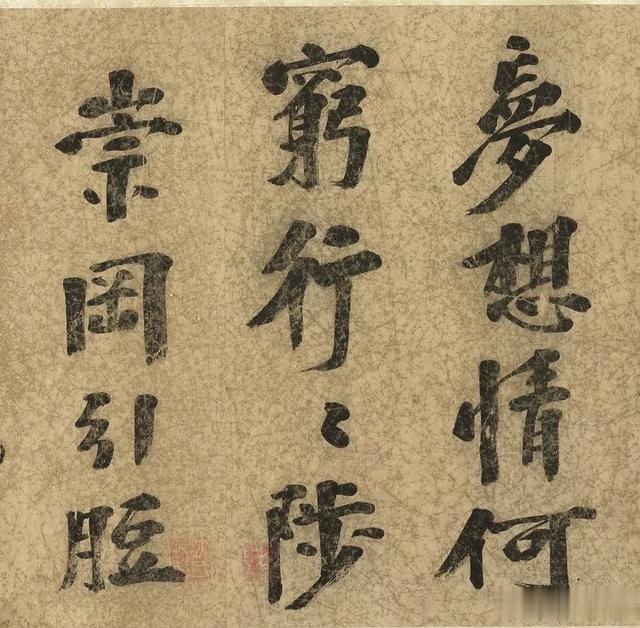 夢想情何
窮行〻陟
崇岡引脰